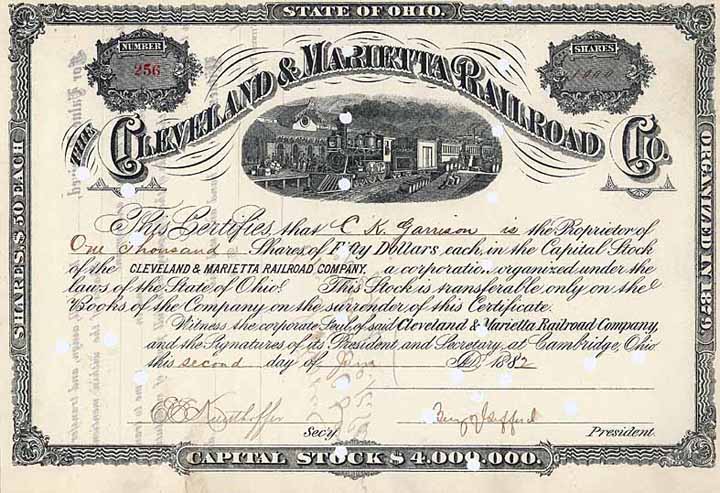 STATE OF OHIO.
NUMBER
256
SHARES
1000
THE CLEVELAND & MARIETTA RAILROAD CO.
SHARES $50 EACH
ORGANIZED IN 1879.
This Certifies that C K Garrison is the Proprietor of
One Thousand Shares of Fifty Dollars each in the Capital Stock
of the CLEVELAND & MARIETTA RAILROAD COMPANY, a corporation organized under the
laws of the State of Ohio. This Stock is transferable only on the
Books of the Company on the surrender of this Certificate.
Witness the corporate Seal of said Cleveland & Marietta Railroad Company,
and the Signatures of its President and Secretary, at Cambridge, Ohio
this second day of AD 1882
Sec'y.
President
CAPITAL STOCK $4,000,000.